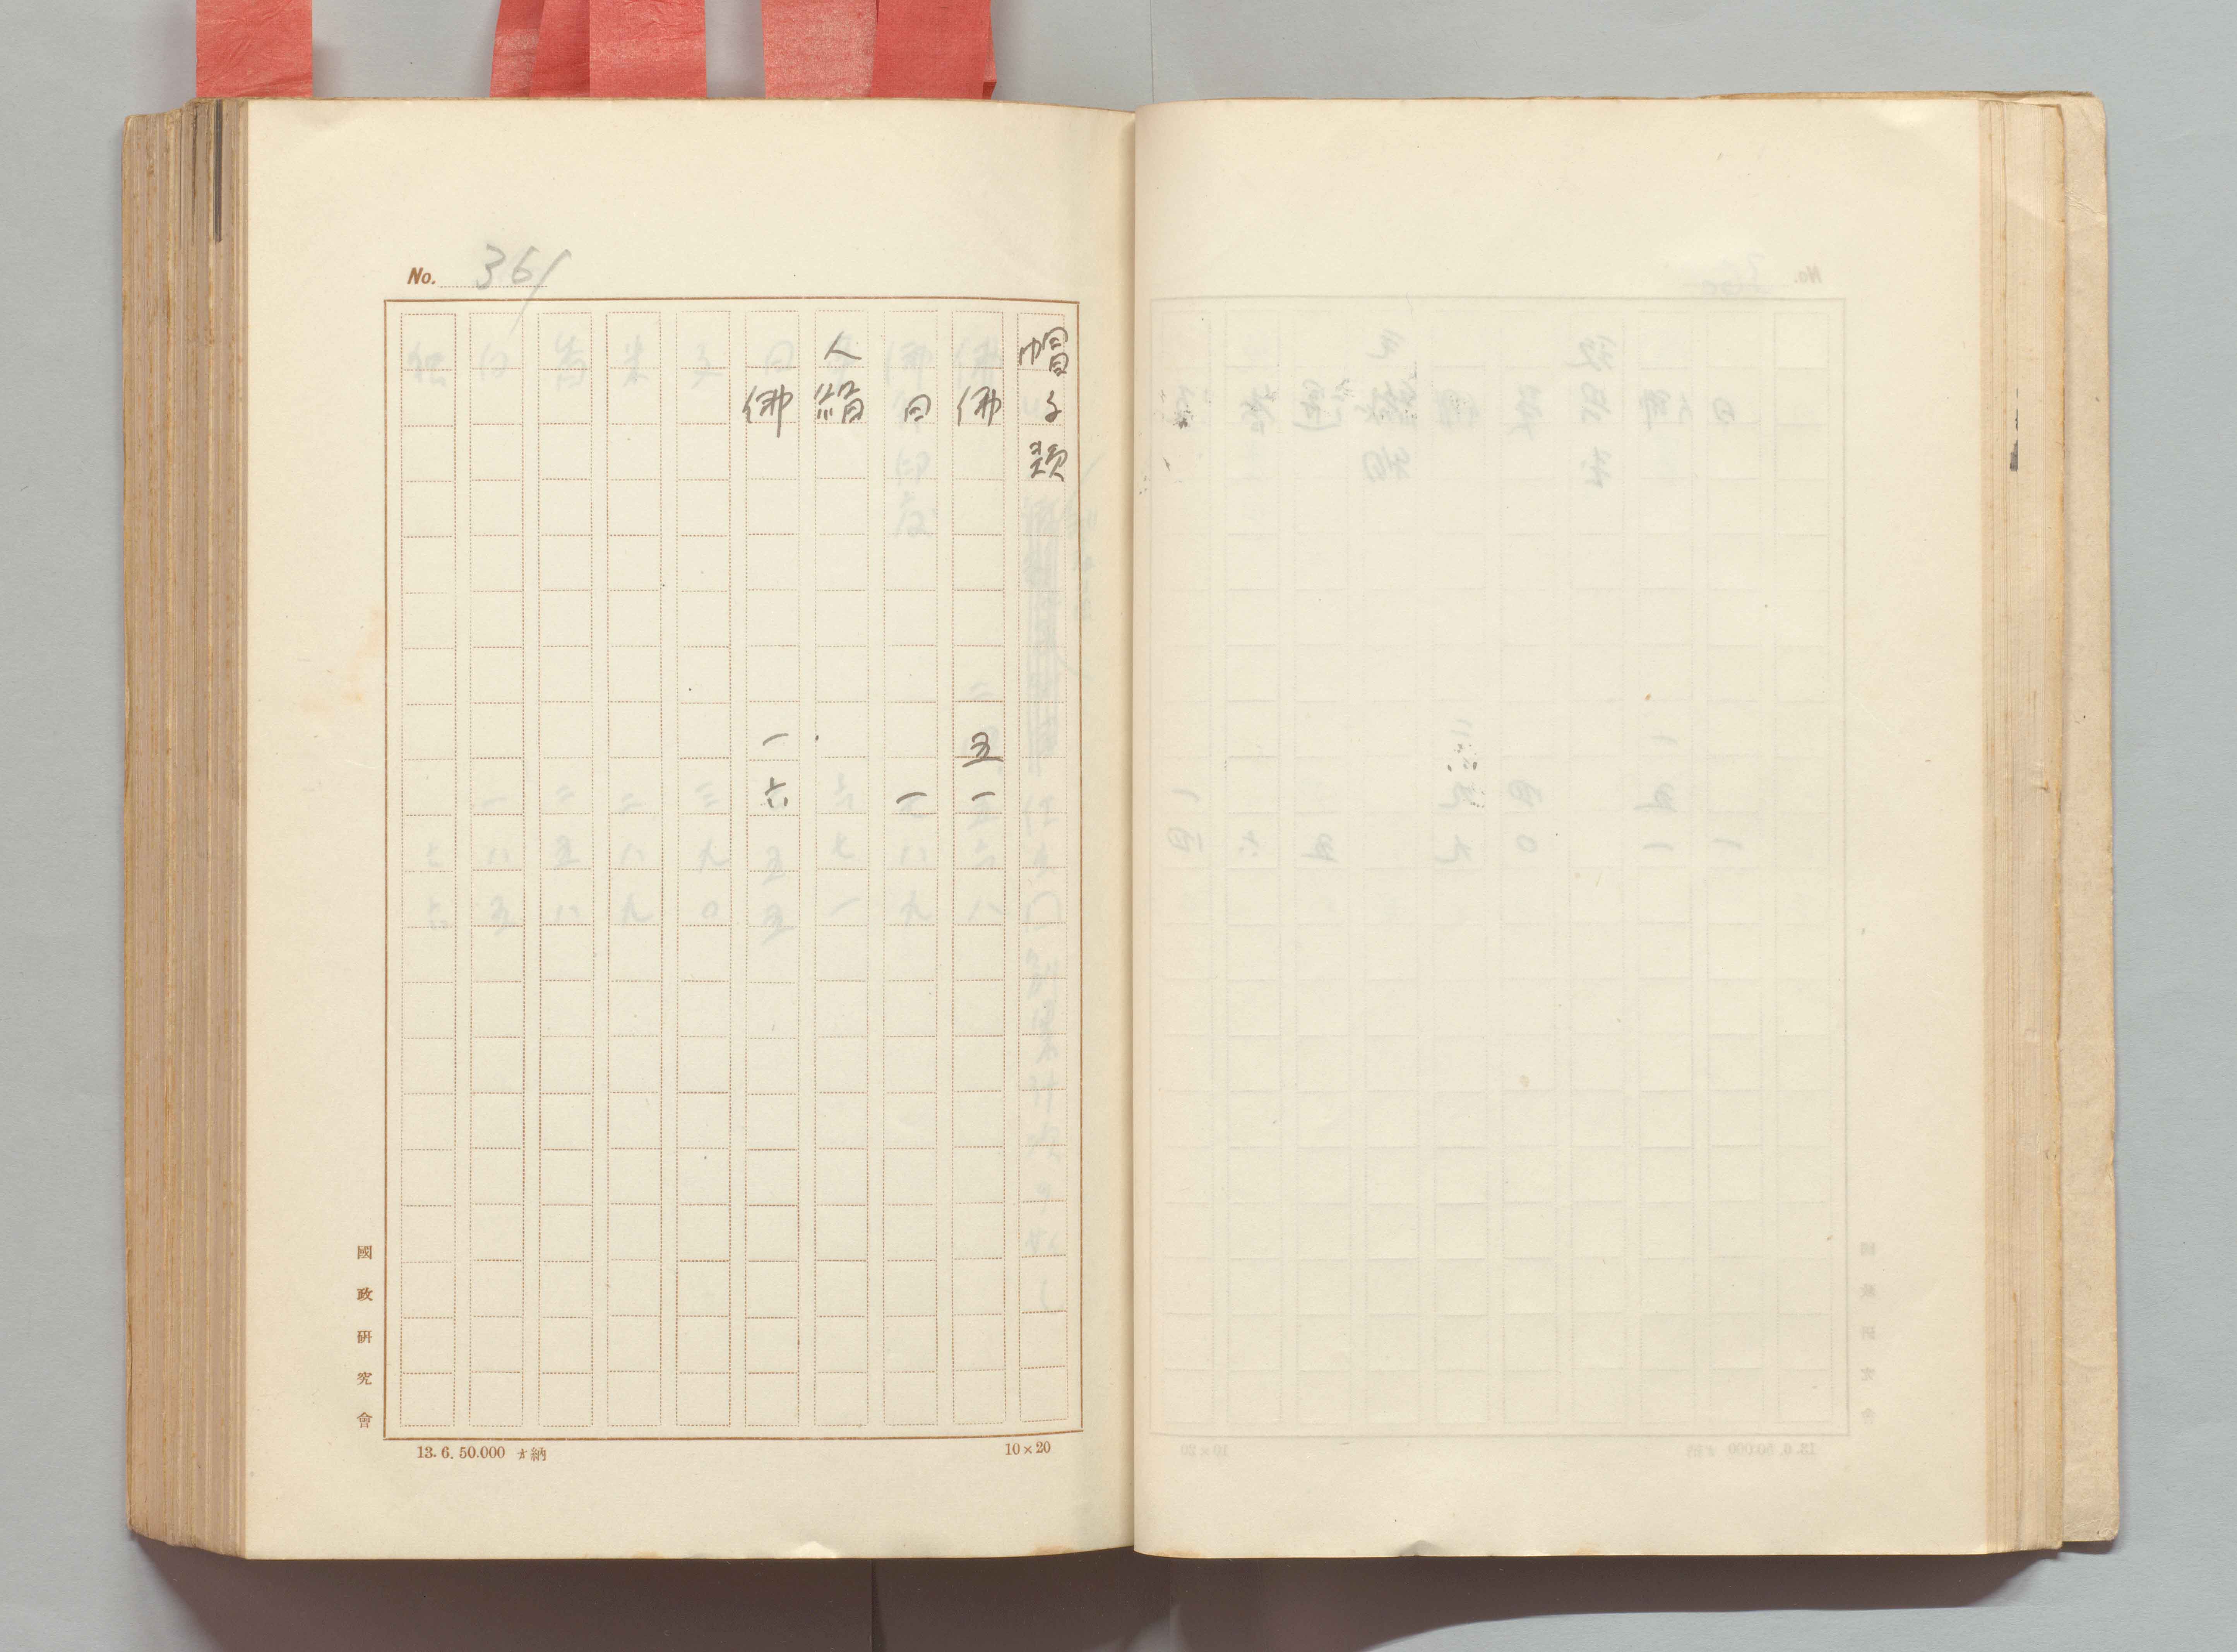 No. 361
帽子類
佛 五一
日 一
人絹
佛 一六
國政研究會
13.6.50.000 才納
10×20